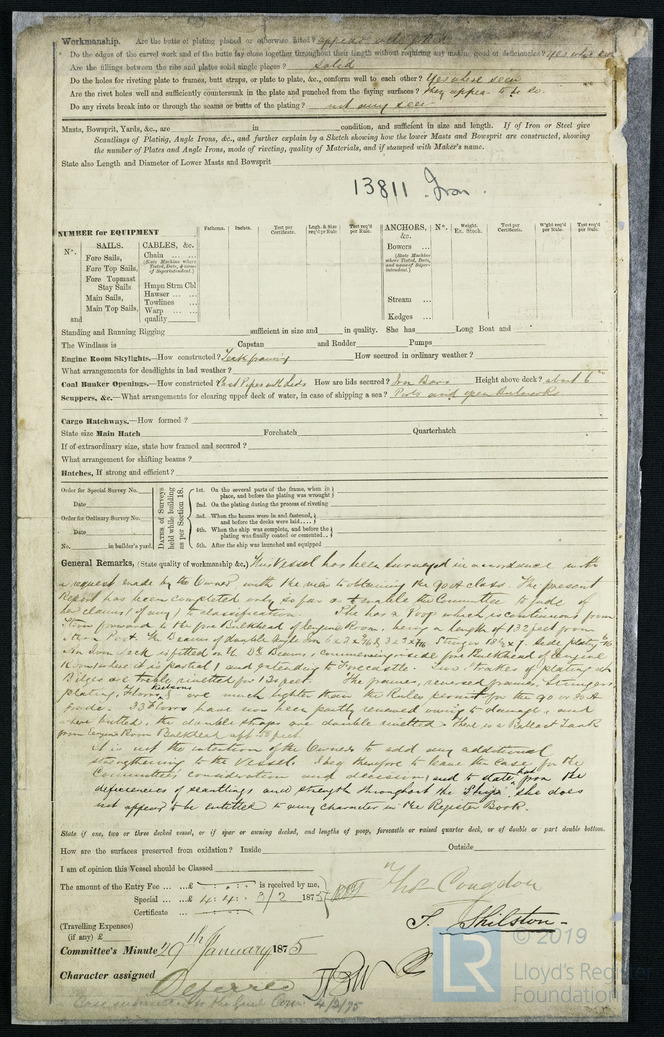 Workmanship. Are the butts of plating planed or otherwise fitted?
Do the edges of the carvel work and of the butts lay close together throughout their length without requiring any making good of deficiencies? Yes where seen
Are the fillings between the ribs and plates solid single pieces? Solid
Do the holes for riveting plate to frames, butt straps, or plate to plate, &c., conform well to each other? Yes where seen
Are the rivet holes well and sufficiently countersunk in the plate and punched from the faying surfaces? They appear to be so.
Do any rivets break into or through the seams or butts of the plating? not any seen
Masts, Bowsprit, Yards, &c., are in condition, and sufficient in size and length. If of Iron or Steel give
Scantlings of Plating, Angle Irons, &c., and further explain by a Sketch showing how the lower Masts and Bowsprit are constructed, showing
the number of Plates and Angle Irons, mode of riveting, quality of Materials, and if stamped with Maker's name.
State also Length and Diameter of Lower Masts and Bowsprit
13811 Iron.
NUMBER for EQUIPMENT
Fathoms. Inches. Test per Certificate. Lngth. & Size req'd pr Rule Test req'd per Rule. ANCHORS, &c. Nº. Weight. Ex. Stock. Test per Certificate. W'ght req'd per Rule. Test req'd per Rule.
Nº. SAILS. CABLES, &c.
Fore Sails, Chain ... ... Bowers ...
Fore Top Sails, (State Machine where Tested, Date, & name of Superintendent.) (State Machine where Tested, Date, and name of Superintendent.)
Fore Topmast Stay Sails Hmpn Strm Cbl
Main Sails, Hawser ... ... Stream ...
Main Top Sails, Towlines ...
Warp ... ... Kedges ...
and quality
Standing and Running Rigging sufficient in size and in quality. She has Long Boat and
The Windlass is Capstan and Rudder Pumps
Engine Room Skylights.—How constructed? Teak framing How secured in ordinary weather?
What arrangements for deadlights in bad weather?
Coal Bunker Openings.—How constructed Cast Pipes with Lids How are lids secured? Iron Bars Height above deck? about 6"
Scuppers, &c.—What arrangements for clearing upper deck of water, in case of shipping a sea? Ports and open Bulwarks
Cargo Hatchways.—How formed?
State size Main Hatch Forehatch Quarterhatch
If of extraordinary size, state how framed and secured?
What arrangement for shifting beams?
Hatches, If strong and efficient?
Order for Special Survey No.
Date
Order for Ordinary Survey No.
Date
No. in builder's yard.
Dates of Surveys held while building as per Section 18.
1st. On the several parts of the frame, when in place, and before the plating was wrought
2nd. On the plating during the process of riveting
3rd. When the beams were in and fastened, and before the decks were laid
4th. When the ship was complete, and before the plating was finally coated or cemented
5th. After the ship was launched and equipped
General Remarks, (State quality of workmanship &c.,) This Vessel has been surveyed in accordance with
a request made by the Owner with the view to obtaining the 90 A class. The present
Report has been completed only so far as to enable the Committee to judge of
her claims (if any) to classification. She has a Poop which is continuous from
Stern forward to the fore Bulkhead of Engine Room, being a length of 132 feet from
Stern Post. The Beams of double Angle Iron
An Iron Deck is fitted on U. Dk Beams, commencing inside fore Bulkhead of Engine
Room, where it is partial, and extending to Forecastle. Two Strakes of plating at
Bilges are treble rivetted for 130 feet. The frames, reversed frames, Stringer
plating, Floors, Keelsons &c are much lighter than the Rules permit for the 90 or 80 A
Grade. 33 Floors have been partly renewed owing to damage, and
where butted, the double straps are double rivetted. There is a Ballast Tank
from Engine Room Bulkhead
It is not the intention of the Owners to add any additional
strengthening to the Vessel. I beg therefore to leave the Case for the
Committee's consideration and decision, and to state, that from the
deficiencies of scantlings and strength throughout the Ship, she does
not appear to be entitled to any character in the Register Book.
State if one, two or three decked vessel, or if spar or awning decked, and lengths of poop, forecastle or raised quarter deck, or of double or part double bottom.
How are the surfaces preserved from oxidation? Inside Outside
I am of opinion this Vessel should be Classed
The amount of the Entry Fee ...£ : : is received by me,
Special ...£ 4 : 4 : 3/2 1875
Certificate ...
Thos Congdon
T. Shilston
(Travelling Expenses)
(if any) £
Committee's Minute 29th January 1875
Character assigned Deferred
4/2/75
LR
© 2019
Lloyd's Register
Foundation